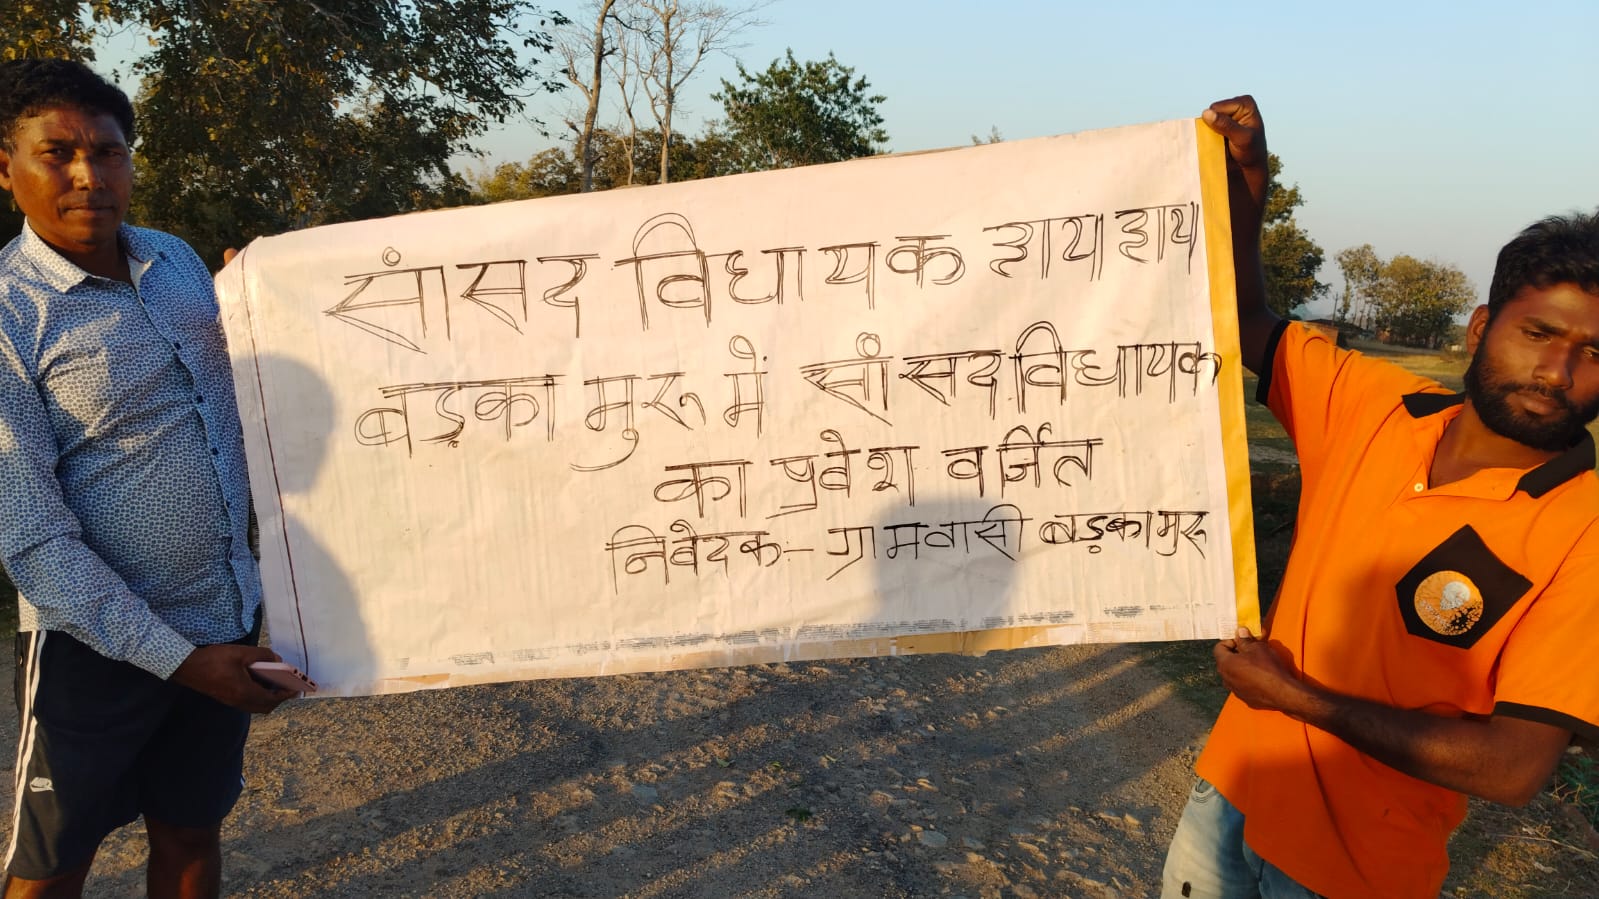 सांसद विधायक हाय हाय
बड़का मुरू में सांसद विधायक
का प्रवेश वर्जित
निवेदक:- ग्रामवासी बड़कामुरू